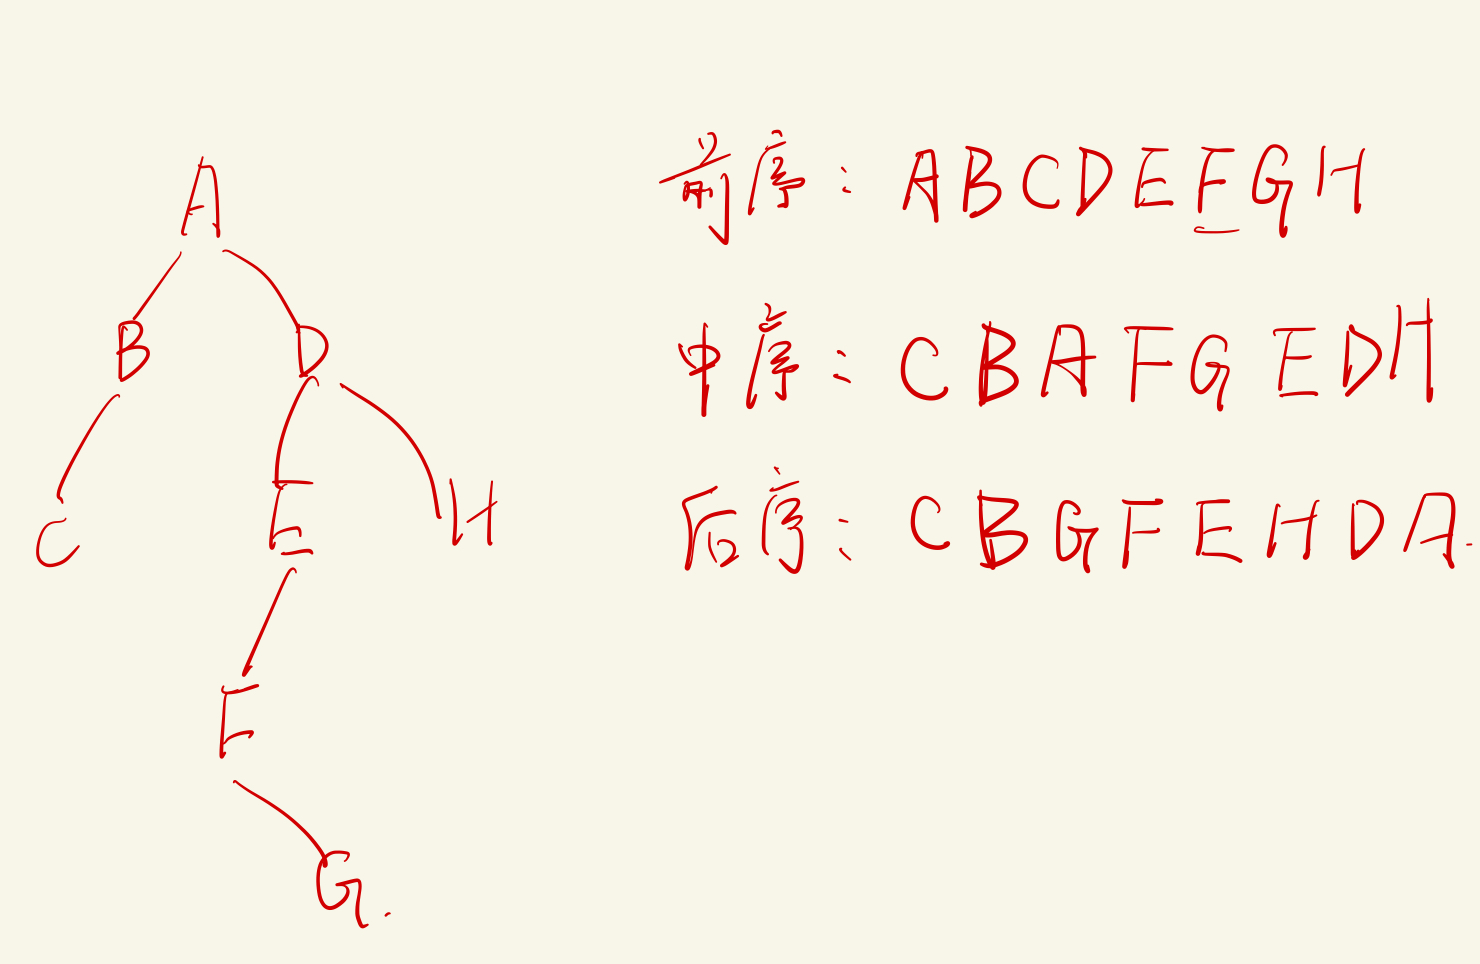 A
B D
C E H
F
G.
前序: ABCDEFGH
中序: CBAFGEDH
后序: CBGFEHDA.